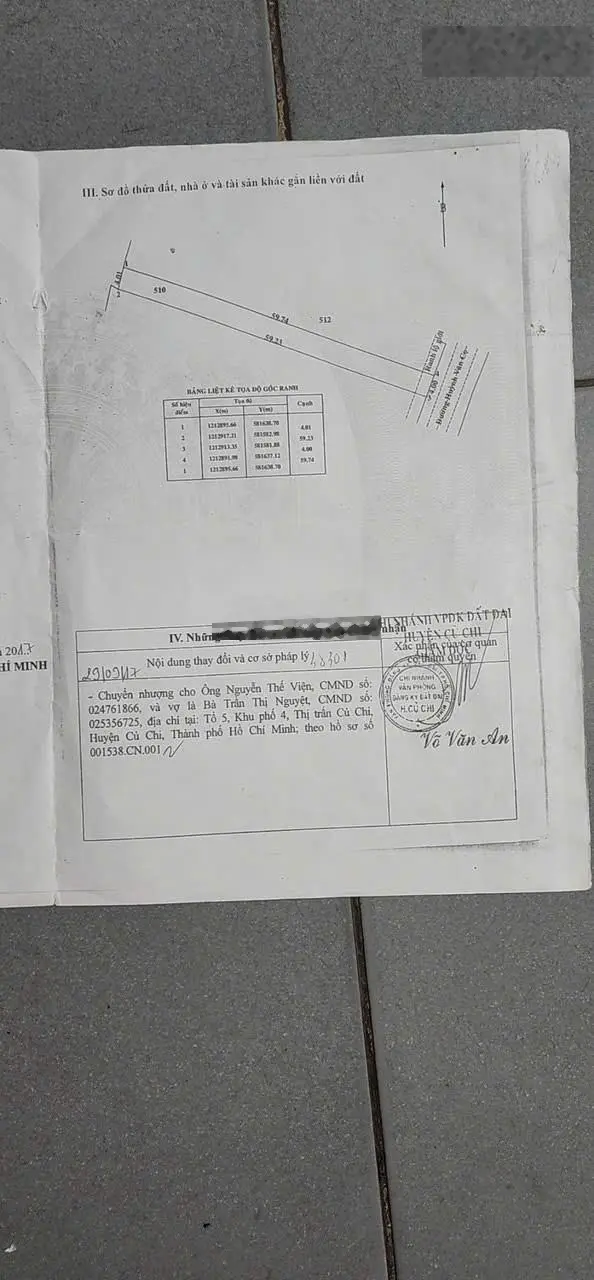 III. Sơ đồ thửa đất, nhà ở và tài sản khác gắn liền với đất
B
1
4.01
2
510
59.74
512
59.21
Ranh lộ giới
4.00
Đường Huỳnh Văn Cọ
BẢNG LIỆT KÊ TỌA ĐỘ GÓC RANH
Số hiệu điểm Tọa độ Cạnh
X(m) Y(m)
1 1212895.66 581638.70
4.01
2 1212917.21 581582.98
59.23
3 1212913.35 581581.88
4.00
4 1212891.98 581637.12
59.74
1 1212895.66 581638.70
n 2017
HÍ MINH
IV. Những nhận
CHI NHÁNH VPĐK ĐẤT ĐAI
HUYỆN CỦ CHI
Nội dung thay đổi và cơ sở pháp lý
Xác nhận của cơ quan
có thẩm quyền
GIÁM ĐỐC
29/09/17
- Chuyển nhượng cho Ông Nguyễn Thế Viện, CMND số:
024761866, và vợ là Bà Trần Thị Nguyệt, CMND số:
025356725, địa chỉ tại: Tổ 5, Khu phố 4, Thị trấn Củ Chi,
Huyện Củ Chi, Thành phố Hồ Chí Minh; theo hồ sơ số
001538.CN.001
CHI NHÁNH
VĂN PHÒNG
ĐĂNG KÝ ĐẤT ĐAI
H.CỦ CHI
Võ Văn An